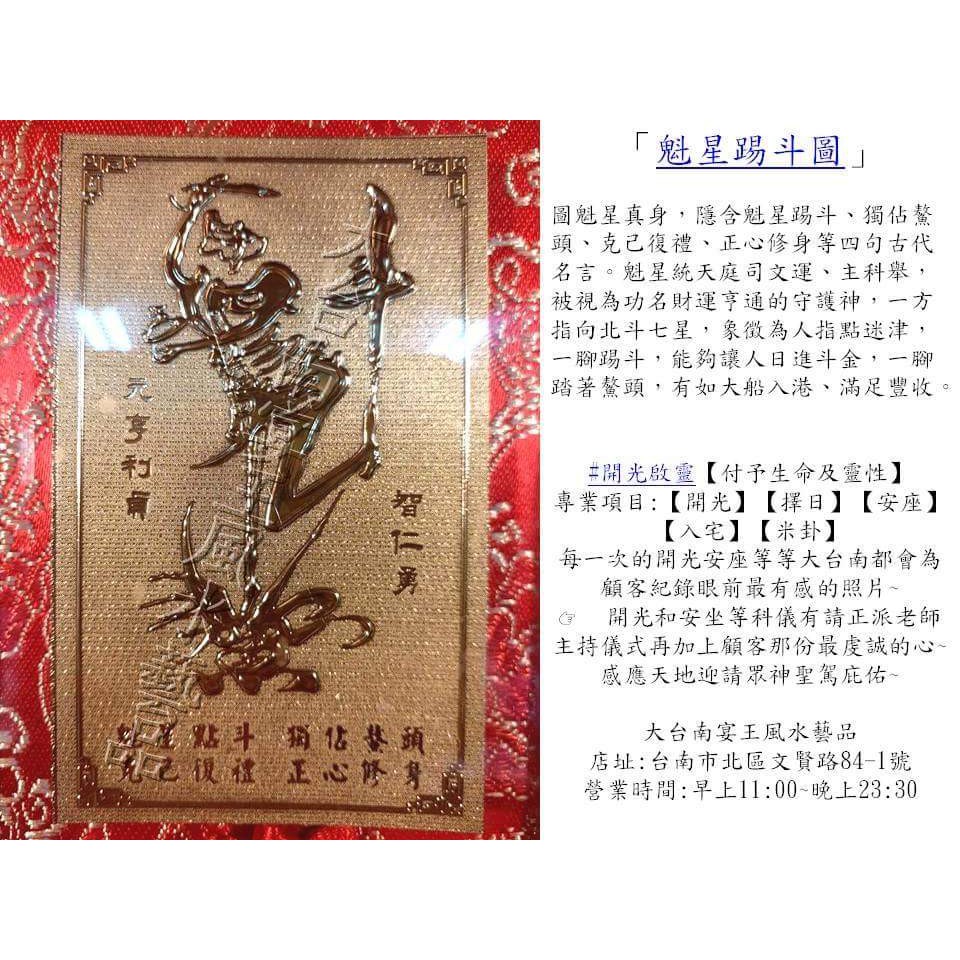 「魁星踢斗圖」
圖魁星真身，隱含魁星踢斗、獨佔鰲
頭、克己復禮、正心修身等四句古代
名言。魁星統天庭司文運、主科舉，
被視為功名財運亨通的守護神，一方
指向北斗七星，象徵為人指點迷津，
一腳踢斗，能夠讓人日進斗金，一腳
踏著鰲頭，有如大船入港、滿足豐收。
#開光啟靈【付予生命及靈性】
專業項目:【開光】【擇日】【安座】
【入宅】【米卦】
每一次的開光安座等等大台南都會為
顧客紀錄眼前最有感的照片~
☞ 開光和安坐等科儀有請正派老師
主持儀式再加上顧客那份最虔誠的心~
感應天地迎請眾神聖駕庇佑~
大台南宴王風水藝品
店址:台南市北區文賢路84-1號
營業時間:早上11:00~晚上23:30
元亨利貞
智仁勇
魁星點斗 獨佔鰲頭
克己復禮 正心修身